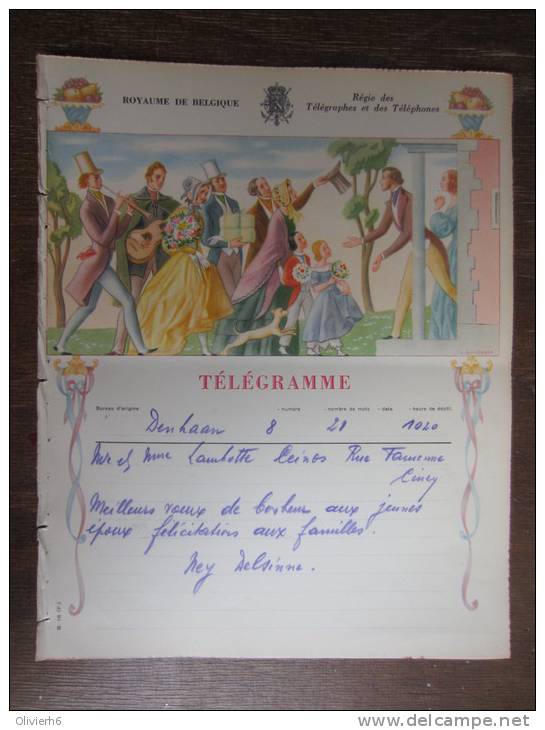 ROYAUME DE BELGIQUE
Régie des
Télégraphes et des Téléphones
TÉLÉGRAMME
Bureau d'origine - numéro - nombre de mots - date - heure de dépôt.
Denhaan 8 28 1020
Mr et Mme Lambotte Rue Famenne
Ciney
Meilleurs voeux de bonheur aux jeunes
époux félicitations aux familles.
Ney Delsinne.
Olivierh6
http://www.delcampe.net